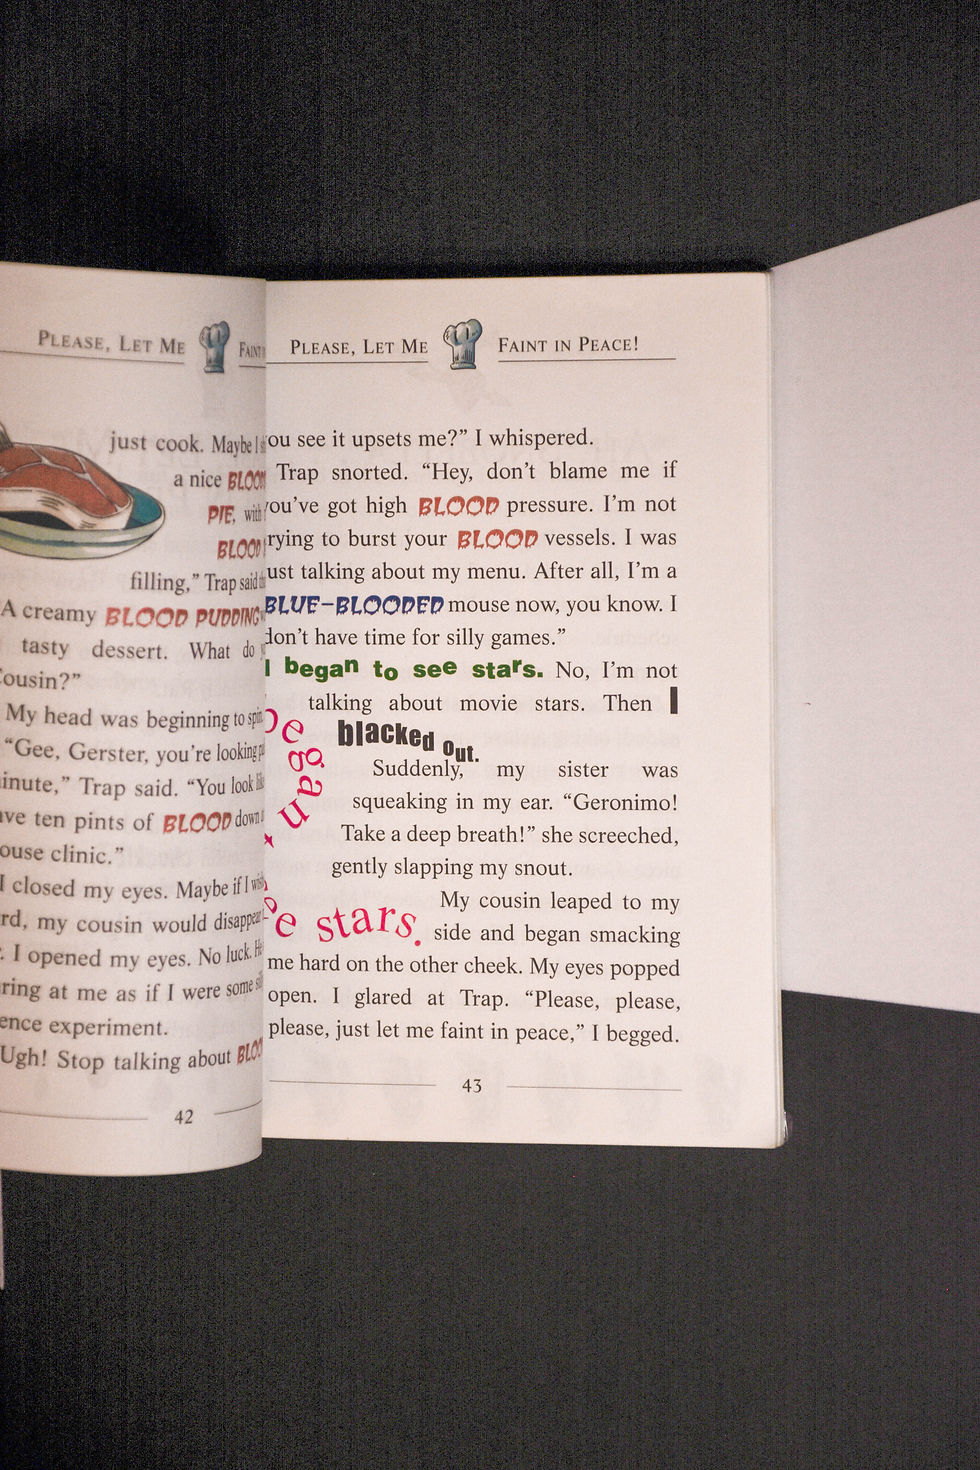 PLEASE, LET ME
just cook. Maybe I
a nice BLOOD
PIE, with
BLOOD
filling,” Trap said
A creamy BLOOD PUDDING
tasty dessert. What do
ousin?”
My head was beginning to spin.
“Gee, Gerster, you’re looking
inute,” Trap said. “You look like
ve ten pints of BLOOD down
ouse clinic.”
I closed my eyes. Maybe if I wish
rd, my cousin would disappear
. I opened my eyes. No luck. He
ring at me as if I were some
ence experiment.
Ugh! Stop talking about BLOO
42
PLEASE, LET ME FAINT IN PEACE!
ou see it upsets me?” I whispered.
Trap snorted. “Hey, don’t blame me if
ou’ve got high BLOOD pressure. I’m not
rying to burst your BLOOD vessels. I was
ust talking about my menu. After all, I’m a
BLUE-BLOODED mouse now, you know. I
don’t have time for silly games.”
I began to see stars. No, I’m not
talking about movie stars. Then I
blacked out.
began
e stars.
Suddenly, my sister was
squeaking in my ear. “Geronimo!
Take a deep breath!” she screeched,
gently slapping my snout.
My cousin leaped to my
side and began smacking
me hard on the other cheek. My eyes popped
open. I glared at Trap. “Please, please,
please, just let me faint in peace,” I begged.
43